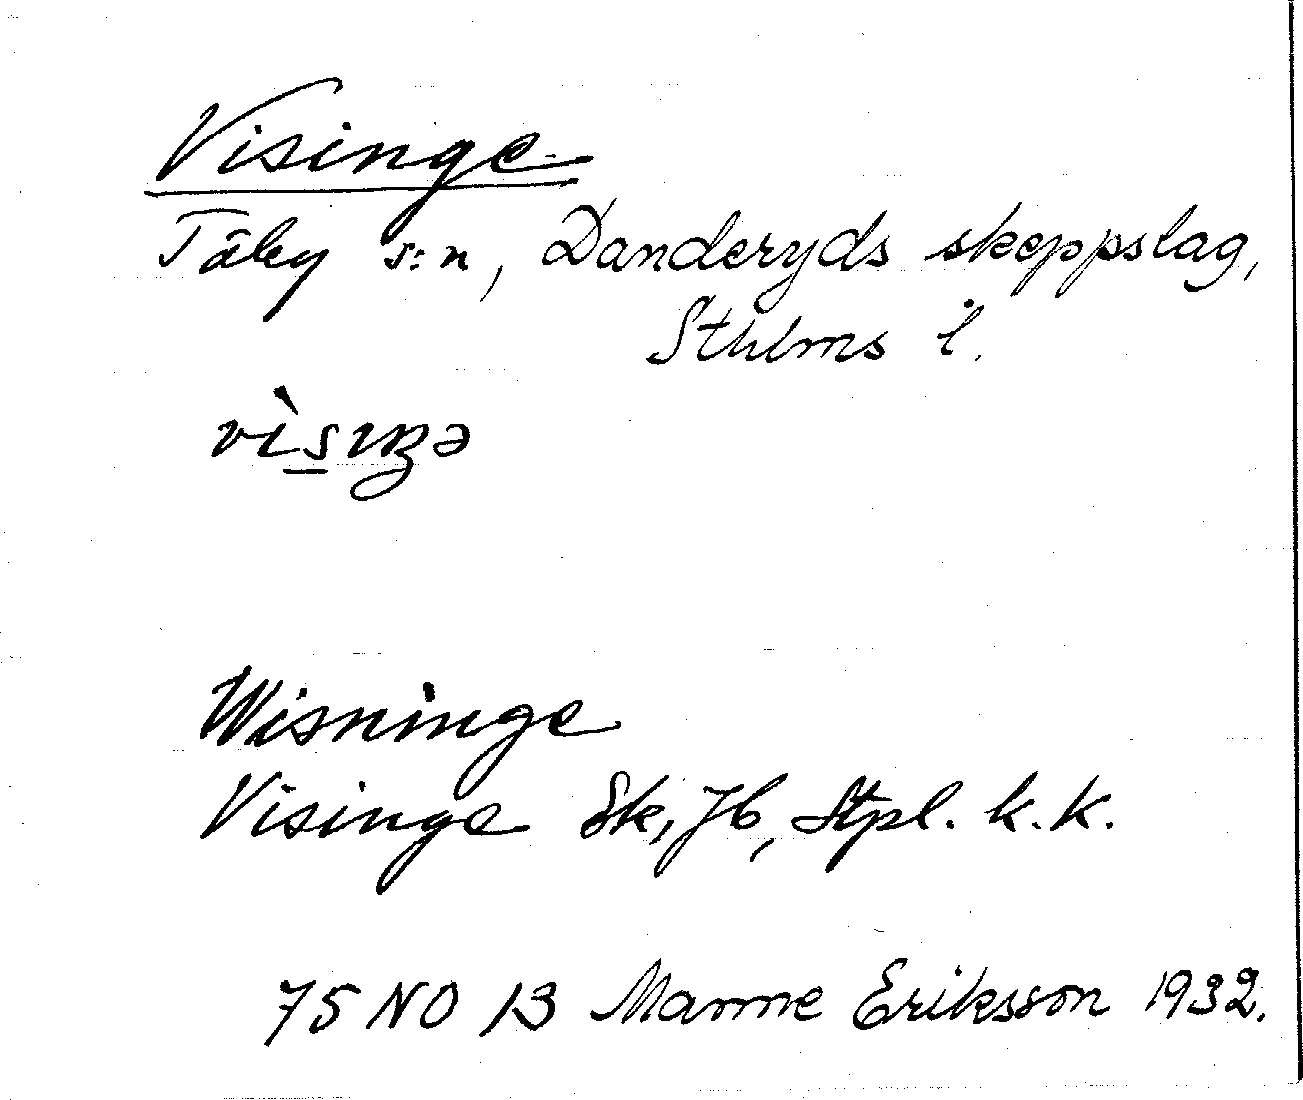 Visinge
Täby s:n, Danderyds skeppslag,
Sthlms l.
vìsıŋə
Wisninge
Visinge Sk, Jb, Stpl. k.k.
75 NO 13 Manne Eriksson 1932.